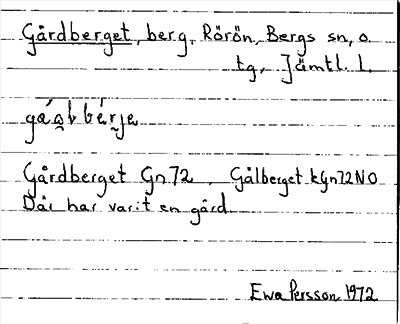 Gårdberget, berg, Rörön, Bergs sn, o.
tg, Jämtl. l.
Gårdberget Gn72, Gålberget kGn72NO
Där har varit en gård
Ewa Persson 1972